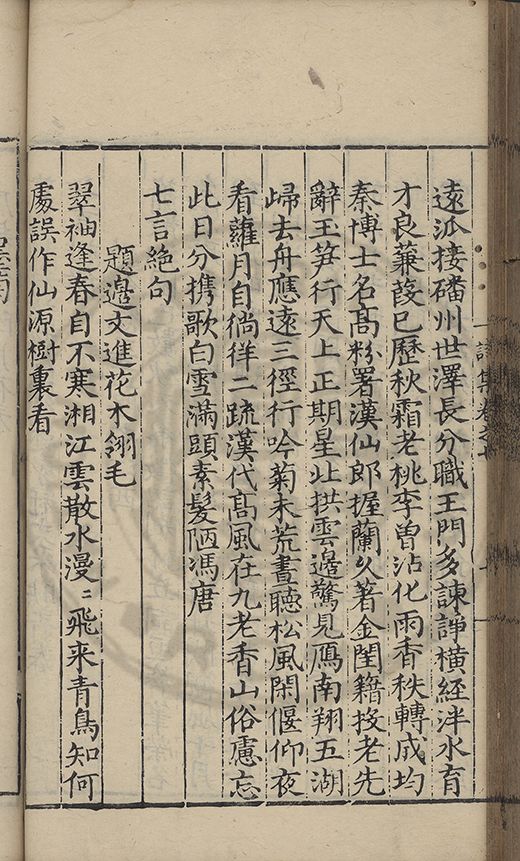 遠派接磻州世澤長分職王門多諫諍橫經泮水育
才良蒹葭已歷秋霜老桃李曾沾化雨香秩轉成均
秦博士名髙粉署漢仙郎握蘭久著金閨籍投老先
辭玉笋行天上正期星北拱雲邊驚見鴈南翔五湖
歸去舟應遠三徑行吟菊未荒晝聽松風閑偃仰夜
看蘿月自徜徉二疏漢代髙風在九老香山俗慮忘
此日分携歌白雪滿頭素髮陋馮唐
七言絶句
題邊文進花木翎毛
翠袖逢春自不寒湘江雲散水漫〻飛來青鳥知何
處誤作仙源樹裏看